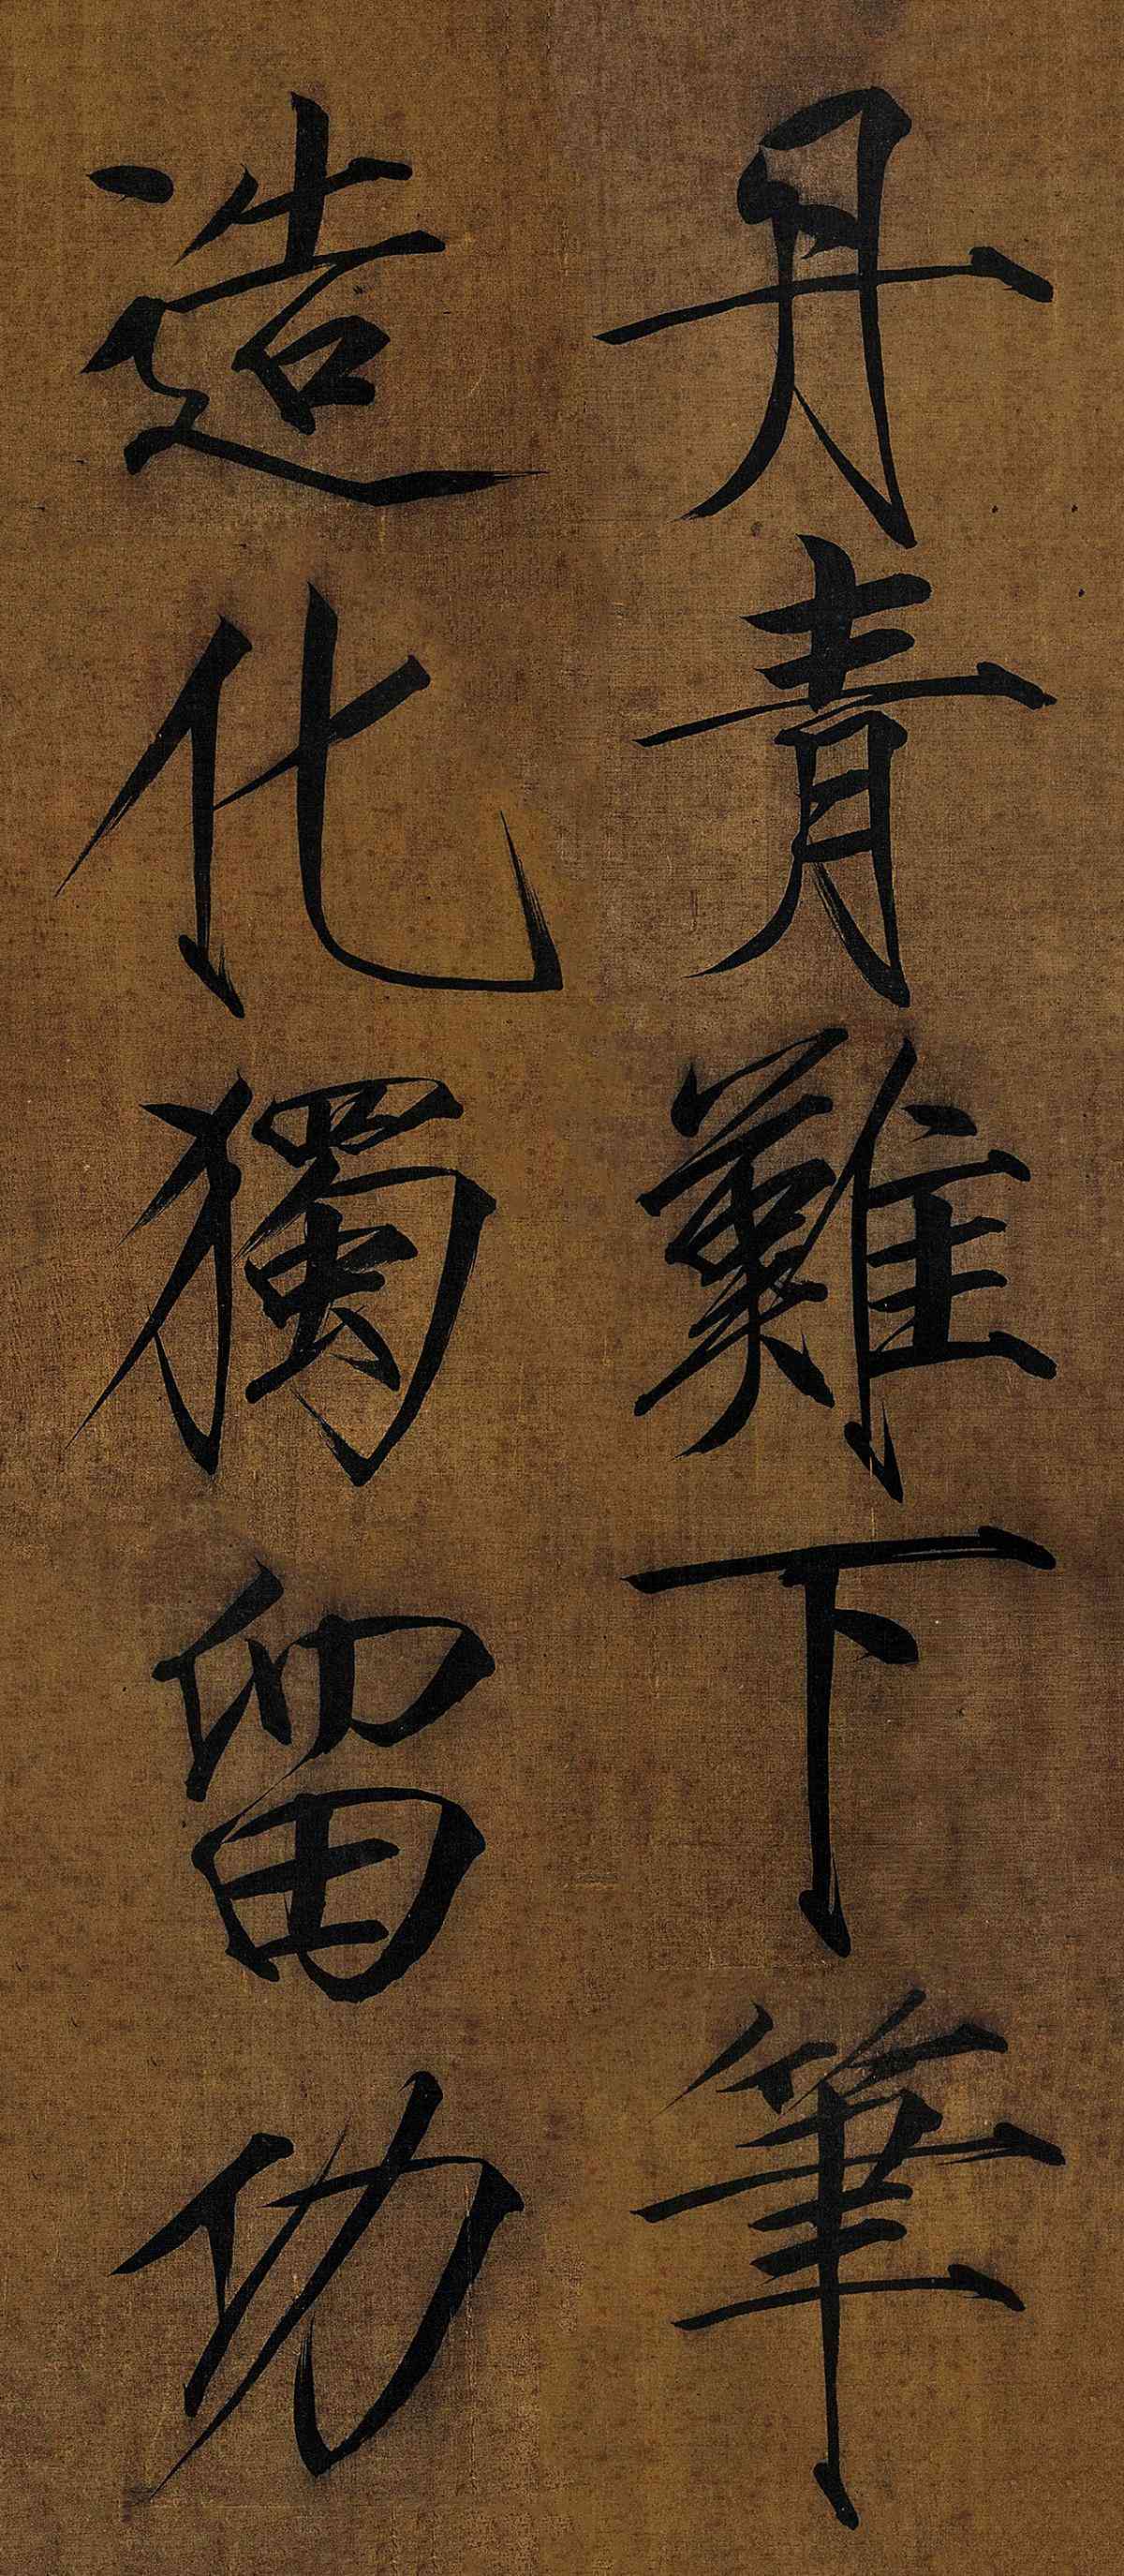 丹青難下筆
造化獨留功